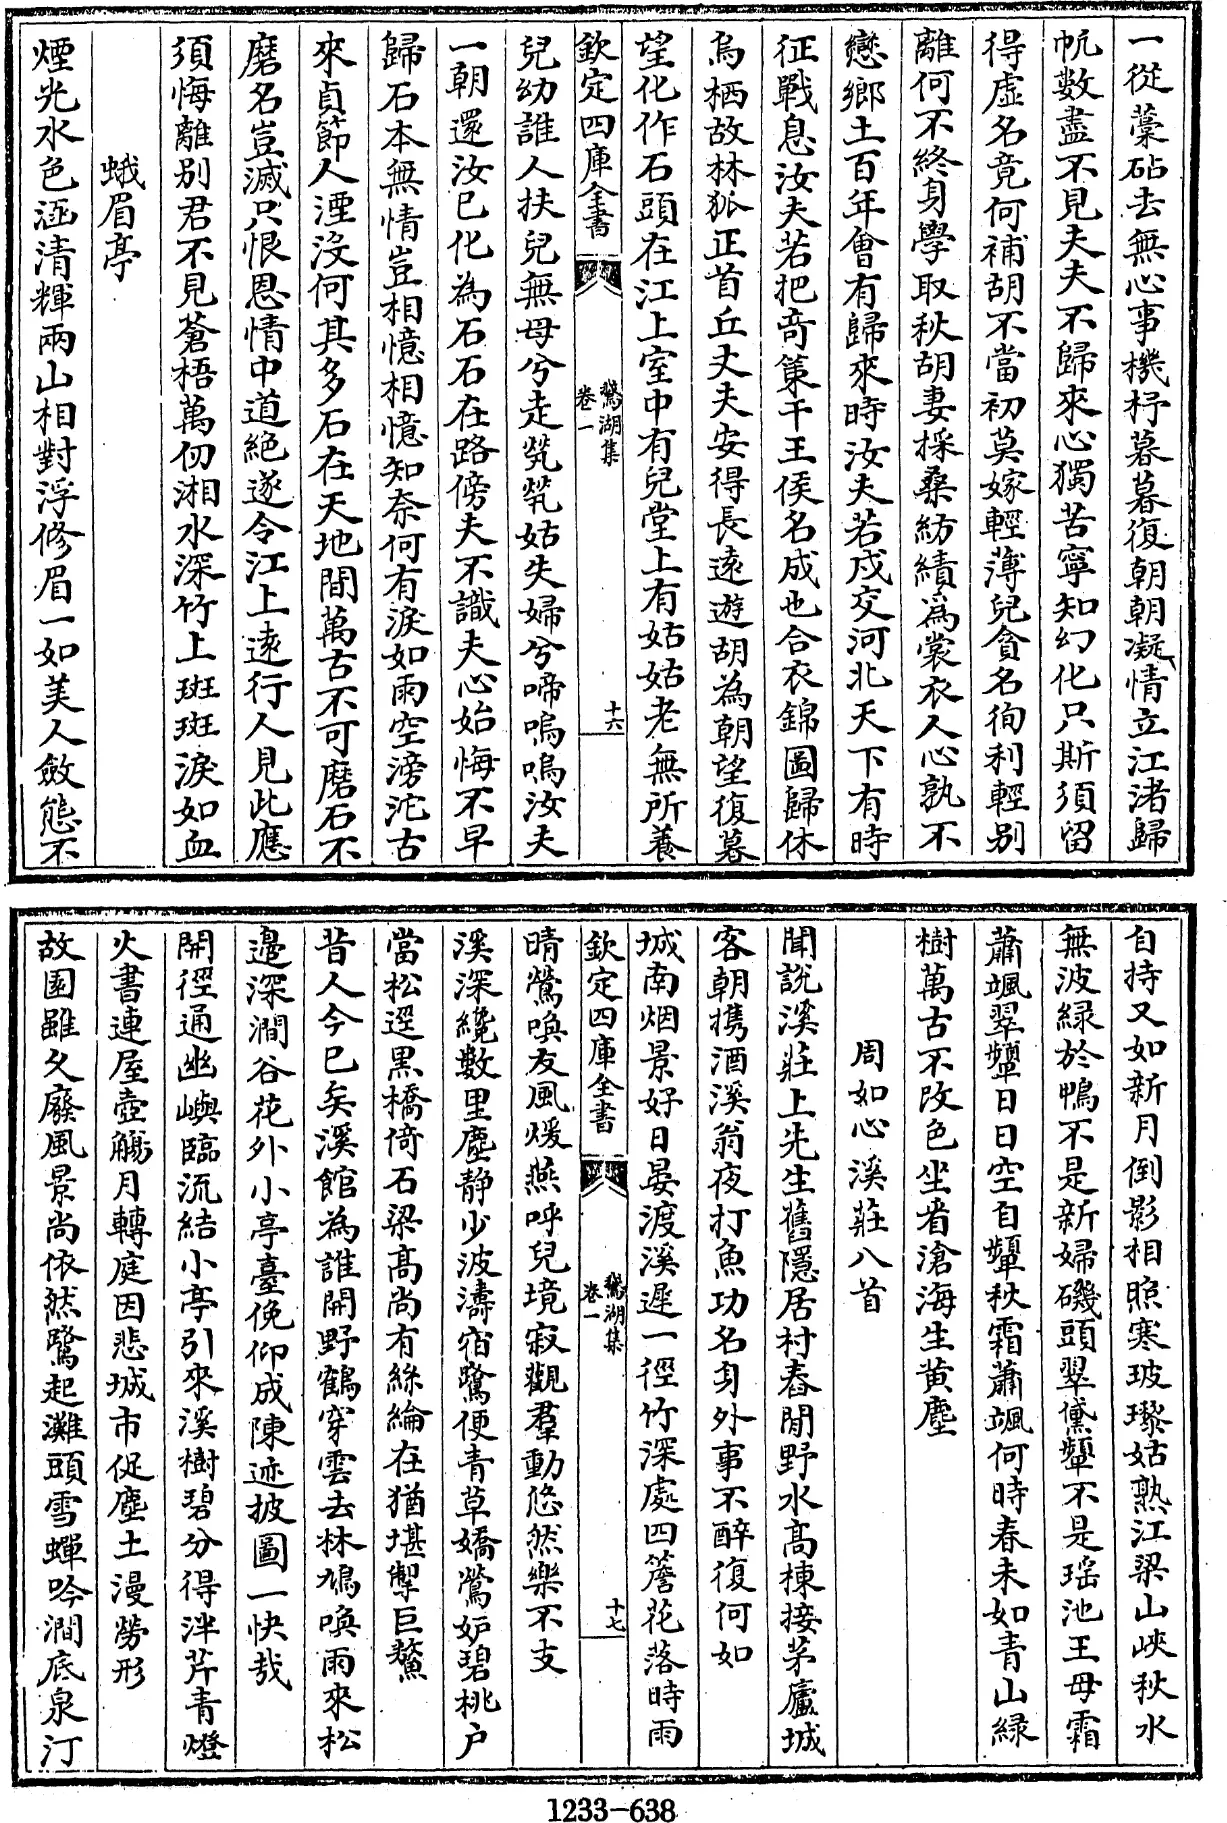 一從藁砧去無心事機杼暮暮復朝朝凝情立江渚歸
帆數盡不見夫夫不歸來心獨苦寧知幻化只斯須留
得虛名竟何補胡不當初莫嫁輕薄兒貪名徇利輕别
離何不終身學取秋胡妻採桑紡績為裳衣人心孰不
戀鄉土百年會有歸來時汝夫若戍交河北天下有時
征戰息汝夫若把竒䇿干王侯名成也合衣錦圖歸休
烏栖故林狐正首丘丈夫安得長遠遊胡為朝望復暮
望化作石頭在江上室中有兒堂上有姑姑老無所養
欽定四庫全書
鵞湖集
卷一
十六
兒幼誰人扶兒無母兮走煢煢姑失婦兮啼嗚嗚汝夫
一朝還汝已化為石石在路傍夫不識夫心始悔不早
歸石本無情豈相憶相憶知奈何有淚如雨空滂沱古
來貞節人湮沒何其多石在天地間萬古不可磨石不
磨名豈滅只恨恩情中道絶遂令江上遠行人見此應
須悔離别君不見蒼梧萬仞湘水深竹上斑斑淚如血
蛾眉亭
煙光水色涵清輝兩山相對浮修眉一如美人斂態不
自持又如新月倒影相照寒玻瓈姑熟江梁山峽秋水
無波綠於鴨不是新婦磯頭翠黛顰不是瑶池王母霜
蕭颯翠顰日日空自顰秋霜蕭颯何時春未如青山緑
樹萬古不改色坐看滄海生黄塵
周如心溪莊八首
聞說溪莊上先生舊隱居村舂閒野水高棟接茅廬城
客朝攜酒溪翁夜打魚功名身外事不醉復何如
城南烟景好日晏渡溪遲一徑竹深處四簷花落時雨
欽定四庫全書
鵞湖集
卷一
十七
晴鶯喚友風煖燕呼兒境寂觀羣動悠然樂不支
溪深纔數里塵静少波濤宿鷺便青草嬌鶯妒碧桃户
當松逕黒橋倚石梁高尚有絲綸在猶堪掣巨鰲
昔人今已矣溪館為誰開野鶴穿雲去林鳩喚雨來松
邉深澗谷花外小亭臺俛仰成陳迹披圖一快哉
開徑通幽嶼臨流結小亭引來溪樹碧分得泮芹青燈
火書連屋壺觴月轉庭因悲城市促塵土漫勞形
故園雖久廢風景尚依然鷺起灘頭雪蟬吟澗底泉汀
1233-638